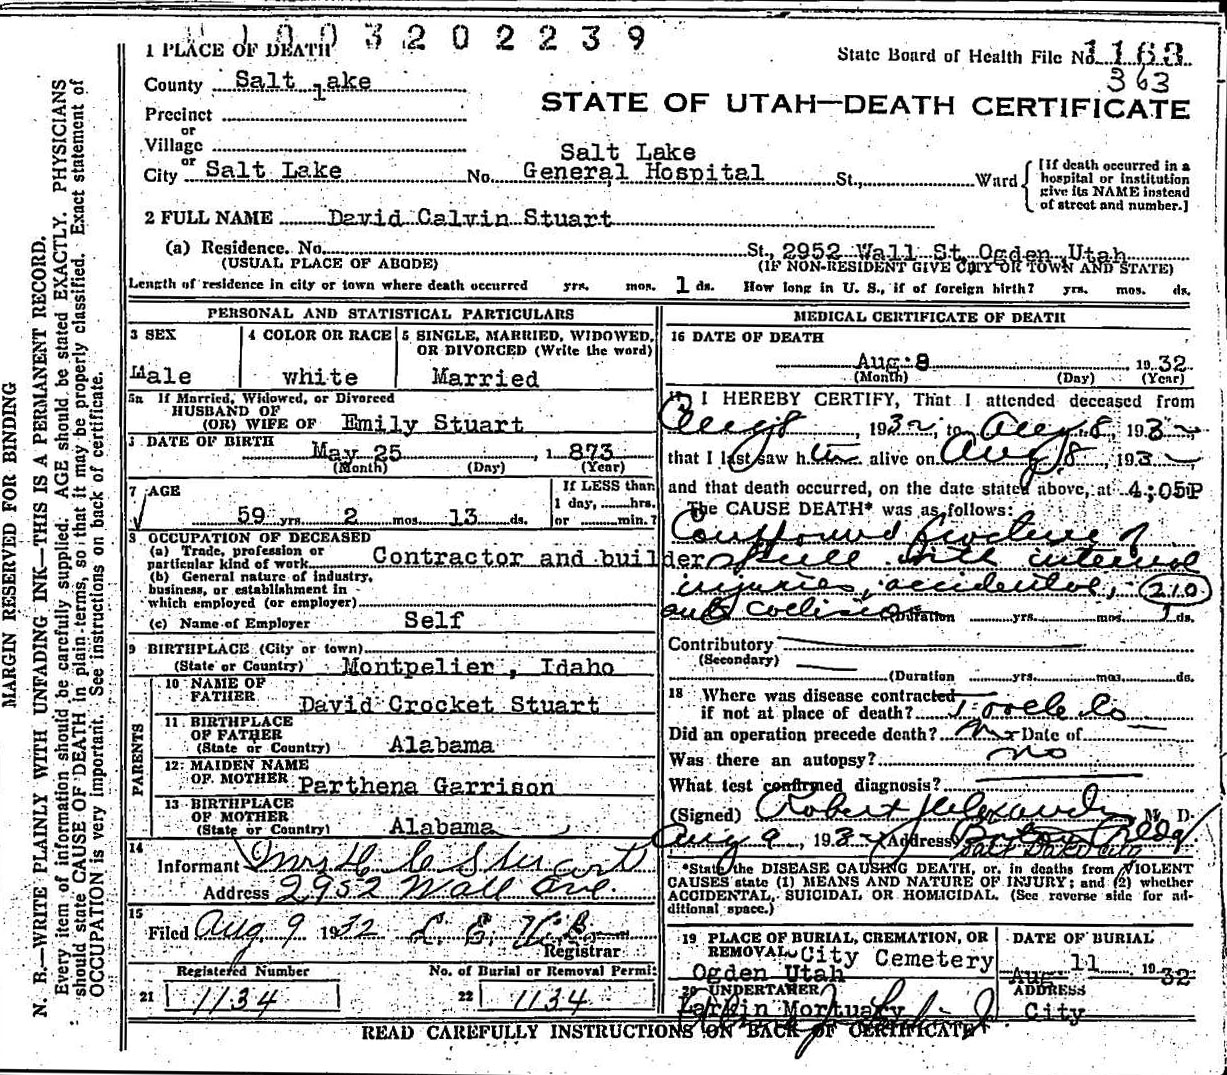 1003202239
1 PLACE OF DEATH
State Board of Health File No. 1163
363
County Salt Lake
STATE OF UTAH—DEATH CERTIFICATE
Precinct
or
Village
Salt Lake
or
City Salt Lake No. General Hospital St., Ward
[If death occurred in a
hospital or institution
give its NAME instead
of street and number.]
2 FULL NAME David Calvin Stuart
(a) Residence. No. St., 2952 Wall St, Ogden, Utah
(USUAL PLACE OF ABODE) (IF NON-RESIDENT GIVE CITY OR TOWN AND STATE)
Length of residence in city or town where death occurred yrs. mos. 1 ds. How long in U. S., if of foreign birth? yrs. mos. ds.
PERSONAL AND STATISTICAL PARTICULARS
3 SEX 4 COLOR OR RACE 5 SINGLE, MARRIED, WIDOWED,
OR DIVORCED (Write the word)
Male white Married
5a If Married, Widowed, or Divorced
HUSBAND OF
(OR) WIFE OF Emily Stuart
DATE OF BIRTH
May 25, 1 873
(Month) (Day) (Year)
7 AGE
59 yrs. 2 mos. 13 ds.
If LESS than
1 day, ......hrs.
or ......min.?
8 OCCUPATION OF DECEASED
(a) Trade, profession or
particular kind of work Contractor and builder
(b) General nature of industry,
business, or establishment in
which employed (or employer)
(c) Name of Employer Self
9 BIRTHPLACE (City or town)
(State or Country) Montpelier, Idaho
PARENTS
10 NAME OF
FATHER David Crocket Stuart
11 BIRTHPLACE
OF FATHER
(State or Country) Alabama
12 MAIDEN NAME
OF MOTHER Parthena Garrison
13 BIRTHPLACE
OF MOTHER
(State or Country) Alabama
14
Informant Mrs. H C Stuart
Address 2952 Wall Ave
15
Filed Aug 9 1932
Registrar
Registered Number No. of Burial or Removal Permit
21 1134 22 1134
MEDICAL CERTIFICATE OF DEATH
16 DATE OF DEATH
Aug. 8 1932
(Month) (Day) (Year)
17 I HEREBY CERTIFY, That I attended deceased from
Aug 8, 1932, to Aug 8, 1932
that I last saw him alive on Aug 8, 193
and that death occurred, on the date stated above, at 4:05P
The CAUSE DEATH* was as follows:
Compound fracture of
skull with internal
injuries, accidental, 210
auto collision (Duration yrs. mos. 1 ds.
Contributory
(Secondary)
(Duration yrs. mos. ds.
18 Where was disease contracted
if not at place of death? Tooele Co
Did an operation precede death? no Date of
Was there an autopsy? no
What test confirmed diagnosis?
(Signed) Robert Alexander M. D.
Aug 9, 193 Address Boston Bldg
Salt Lake City
*State the DISEASE CAUSING DEATH, or, in deaths from VIOLENT
CAUSES state (1) MEANS AND NATURE OF INJURY; and (2) whether
ACCIDENTAL, SUICIDAL OR HOMICIDAL. (See reverse side for ad-
ditional space.)
19 PLACE OF BURIAL, CREMATION, OR
REMOVAL City Cemetery
Ogden Utah
DATE OF BURIAL
Aug. 11 1932
20 UNDERTAKER
Larkin Mortuary
ADDRESS
City
READ CAREFULLY INSTRUCTIONS ON BACK OF CERTIFICATE
MARGIN RESERVED FOR BINDING
N. B.—WRITE PLAINLY WITH UNFADING INK—THIS IS A PERMANENT RECORD.
Every item of information should be carefully supplied. AGE should be stated EXACTLY. PHYSICIANS
should state CAUSE OF DEATH in plain terms, so that it may be properly classified. Exact statement of
OCCUPATION is very important. See instructions on back of certificate.